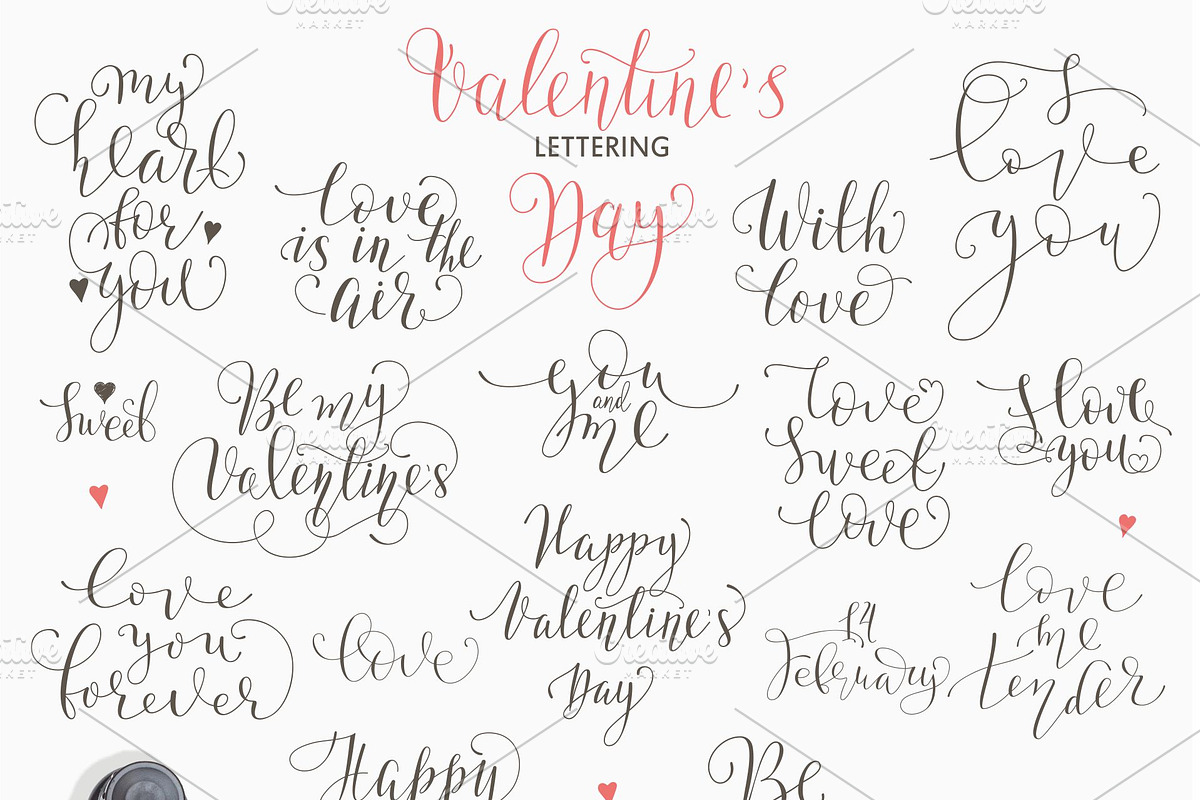 Valentine's
LETTERING
Day
my
heart
for
you
love
is in the
air
With
love
I
love
you
Sweet
Be my
Valentine's
you
and
me
love
Sweet
love
I love
you
love
you
forever
love
Happy
Valentine's
Day
14
February
love
me
tender
Happy
Be
Creative
MARKET
Creative
MARKET
Creative
MARKET
Creative
MARKET
Creative
MARKET
Creative
MARKET